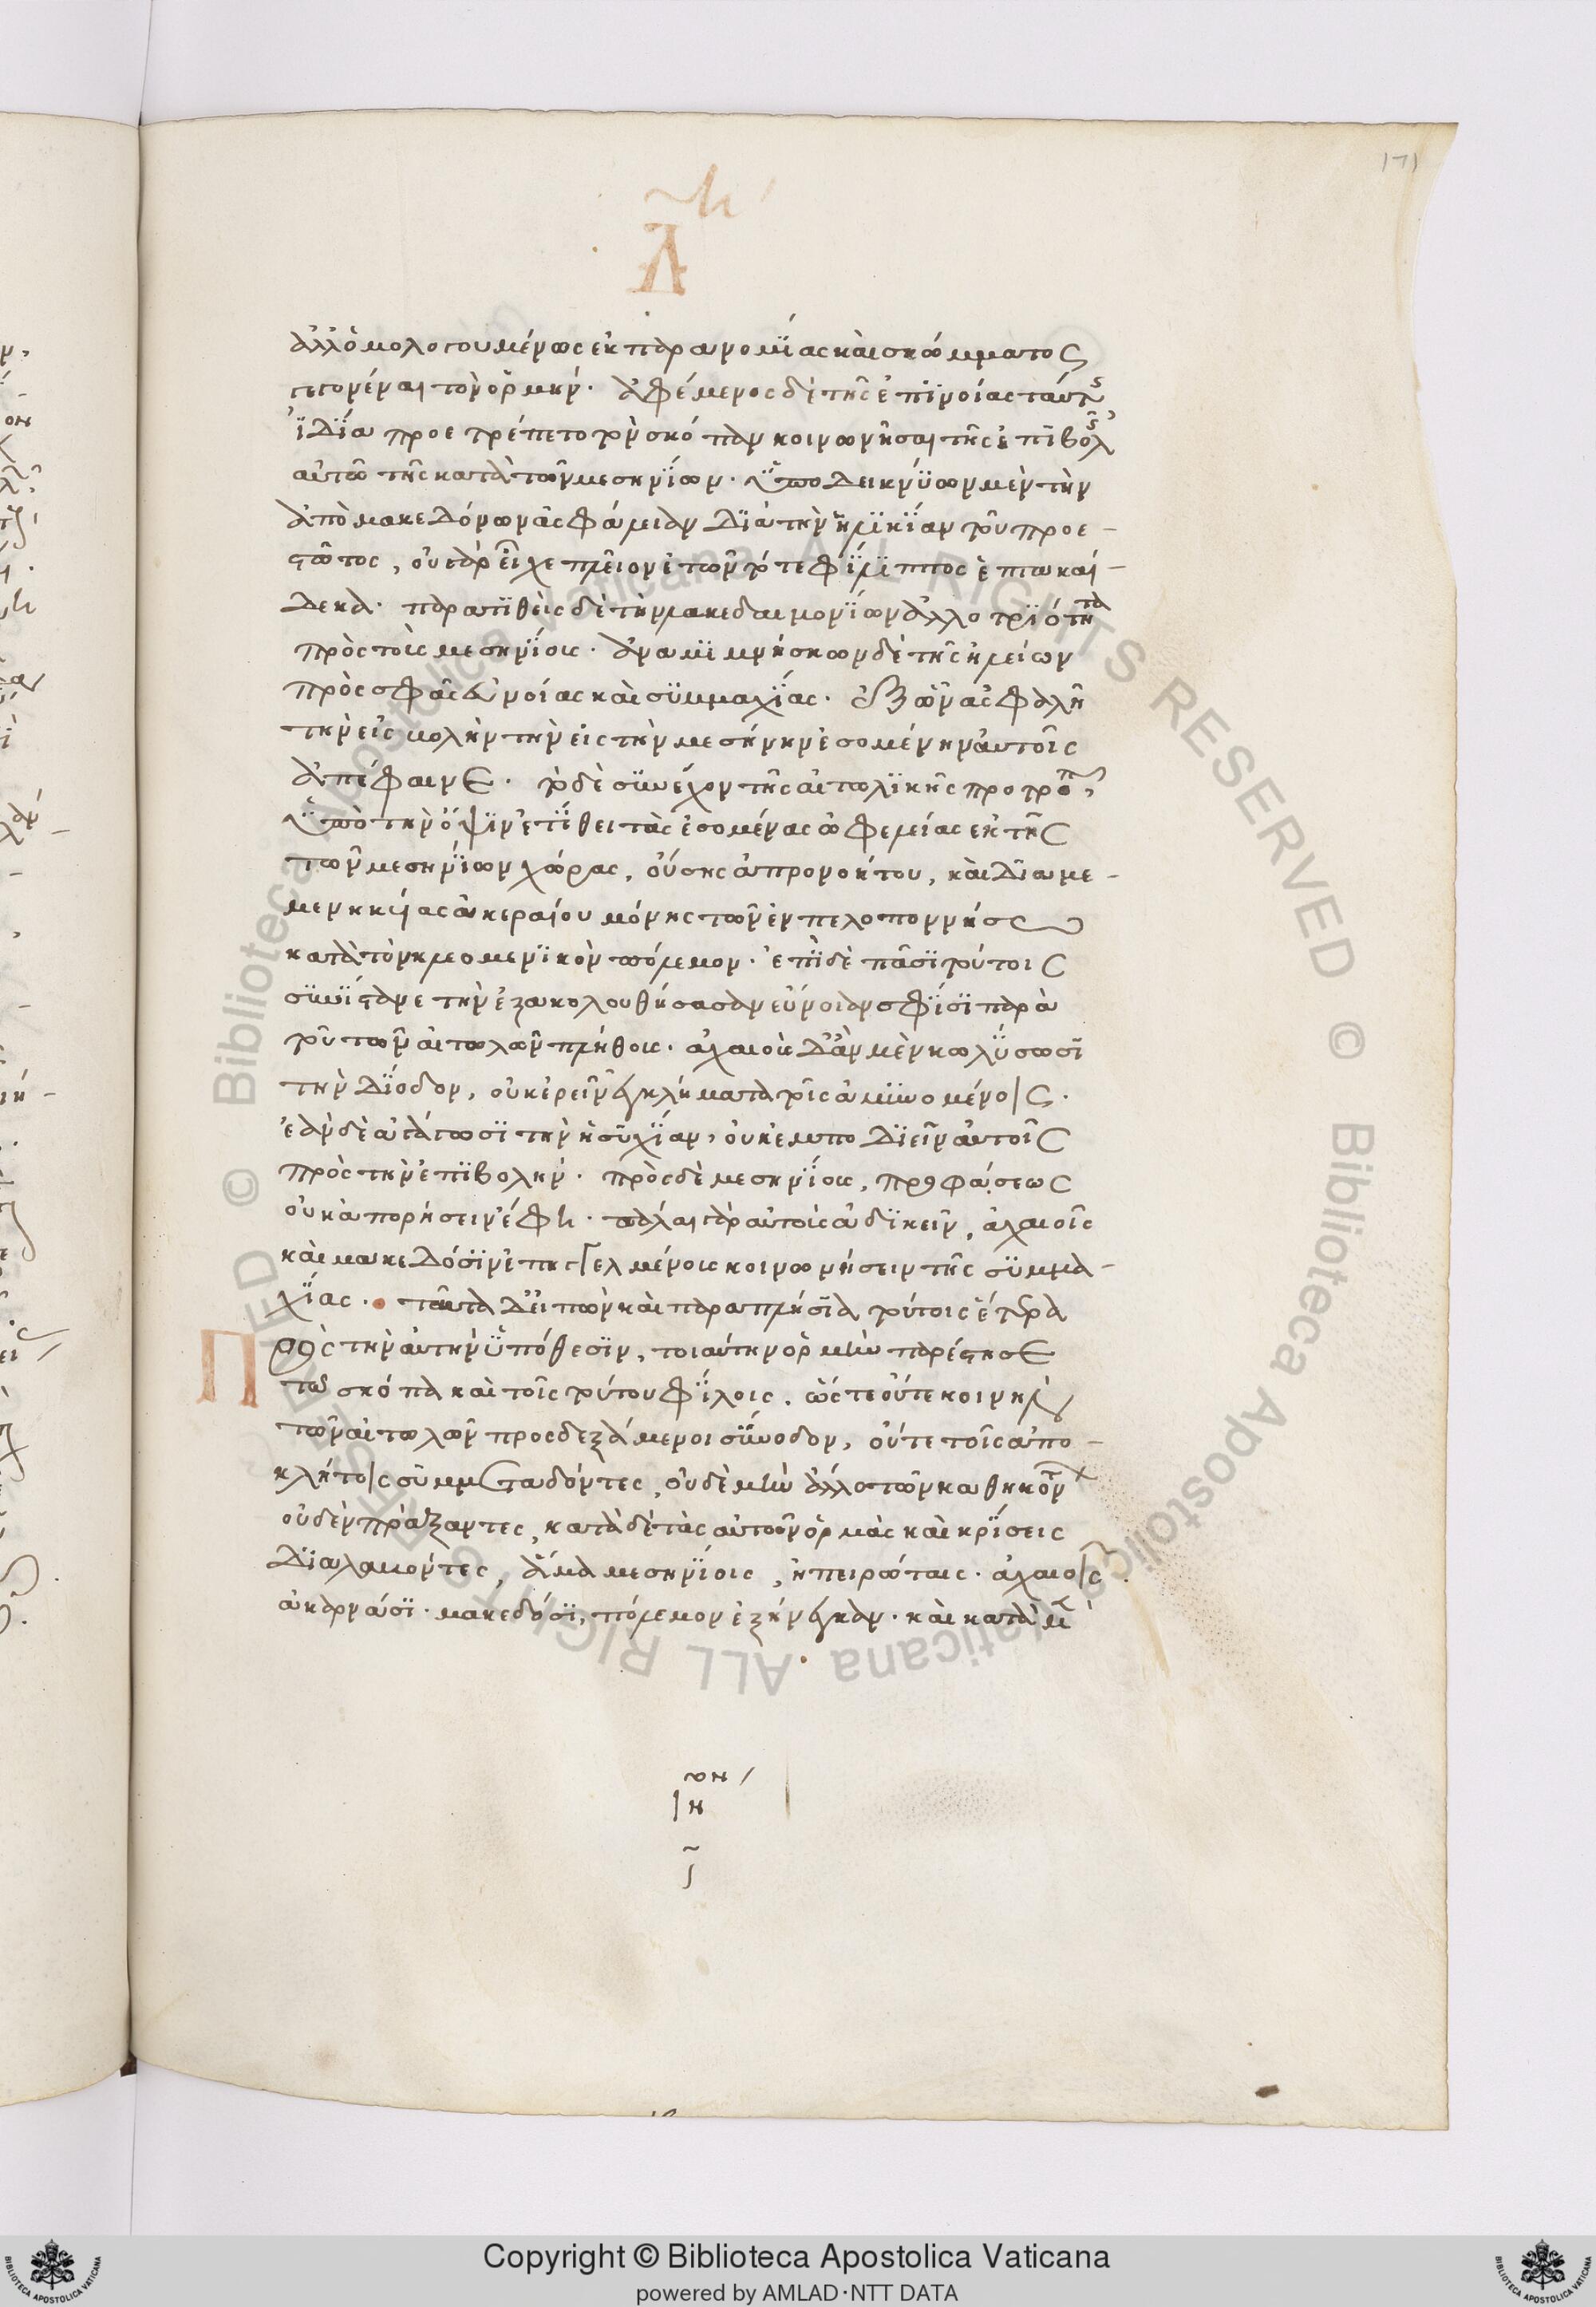 171
ἀλλ' ὁμολογουμένως ἐκ παρανομίας καὶ σκώμματος
γεγονέναι τὸν ὁρμήν. ἀφέμενος δὲ τῆς ἐπινοίας ταύτης
ἰδία προετρέπετο τὸν σκόπαν κοινωνῆσαι τῆς ἐπιβολῆς
αὐτῶ τῆς κατὰ τῶν μεσηνίων. ὑποδεικνύων μὲν τὴν
ἀπὸ μακεδόνων ἀσφάλειαν διὰ τὴν ἡλικίαν τοῦ προε-
στῶτος, οὐ γὰρ εἶχε πλεῖον ἐτῶν τότε φίλιππος ἑπτακαί-
δεκα. παρατιθεὶς δὲ τὴν λακεδαιμονίων ἀλλοτριότητα
πρὸς τοὺς μεσηνίους. ἀναμιμνήσκων δὲ τῆς ἠλείων
πρὸς σφᾶς εὐνοίας καὶ συμμαχίας. ἐξ ὧν ἀσφαλῆ
τὴν εἰσβολὴν τὴν εἰς τὴν μεσήνην ἐσομένην αὐτοῖς
ἀπέφαινε. τὸ δὲ συνέχον τῆς αἰτωλικῆς προτροπῆς,
ὑπὸ τὴν ὄψιν ἐτίθει τὰς ἐσομένας ὠφελείας ἐκ τῆς
τῶν μεσηνίων χώρας, οὔσης ἀπρονοήτου, καὶ διαμε-
μενηκυίας ἀκεραίου μόνης τῶν ἐν πελοποννήσω
κατὰ τὸν κλεομενικὸν πόλεμον. ἐπὶ δὲ πᾶσι τούτοις
συνίστανε τὴν ἐξακολουθήσασαν εὔνοιαν σφίσι παρὰ
τοῦ τῶν αἰτωλῶν πλήθους. ἀχαιοὺς δ' ἂν μὲν κωλύσωσι
τὴν δίοδον, οὐκ ἐρεῖν ἐγκλήματα τοῖς ἀμυνομένοις.
ἐὰν δὲ ἀγάγωσι τὴν ἡσυχίαν, οὐκ ἐμποδιεῖν αὐτοῖς
πρὸς τὴν ἐπιβολήν. πρὸς δὲ μεσηνίους, προφάσεως
οὐκ ἀπορήσειν ἔφη. πάλαι γὰρ αὐτοὺς ἀδικεῖν, ἀχαιοῖς
καὶ μακεδόσιν ἐπηγγελμένους κοινωνήσειν τῆς συμμα-
χίας. ταῦτα δ' εἰπὼν καὶ παραπλήσια τούτοις ἕτερα
Πρὸς τὴν αὐτὴν ὑπόθεσιν, τοιαύτην ὁρμὴν παρέστησε
τῶ σκόπα καὶ τοῖς τούτου φίλοις. ὥς τε οὔτε κοινὴν
τῶν αἰτωλῶν προσδεξάμενοι σύνοδον, οὔτε τοῖς ἀπο-
κλήτοις συμμεταδόντες, οὐδὲ μὴν ἄλλο τῶν καθηκόντων
οὐδὲν πράξαντες, κατὰ δὲ τὰς αὐτῶν ὁρμὰς καὶ κρίσεις
διαλαβόντες, ἅμα μεσηνίοις, ἠπειρώταις. ἀχαιοῖς.
ἀκαρνάσι. μακεδόσι, πόλεμον ἐξήνεγκαν. καὶ κατὰ μὲν
Copyright © Biblioteca Apostolica Vaticana
powered by AMLAD·NTT DATA